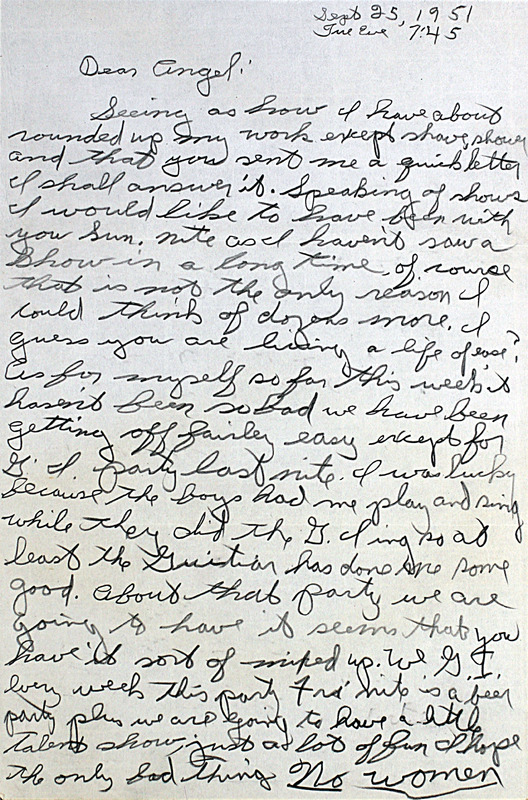 Sept 25, 1951
Tue Eve 7:45
Dear Angel:
Seeing as how I have about
rounded up my work except shave, shower
and that you sent me a quick letter
I shall answer it. Speaking of shows
I would like to have been with
you Sun. nite as I haven't saw a
show in a long time, of course
that is not the only reason I
could think of dozens more. I
guess you are living a life of ease?
As for myself so far this week it
hasn't been so bad we have been
getting off fairley easy except for
G. I party last nite. I was lucky
because the boys had me play and sing
while they did the G. I ing so at
least the Guistiar has done me some
good. About that party we are
going to have it seems that you
have it sort of mixed up. We G. I.
every week this party Fri nite is a beer
party plus we are going to have a little
talent show, just a lot of fun I hope
the only bad thing No women